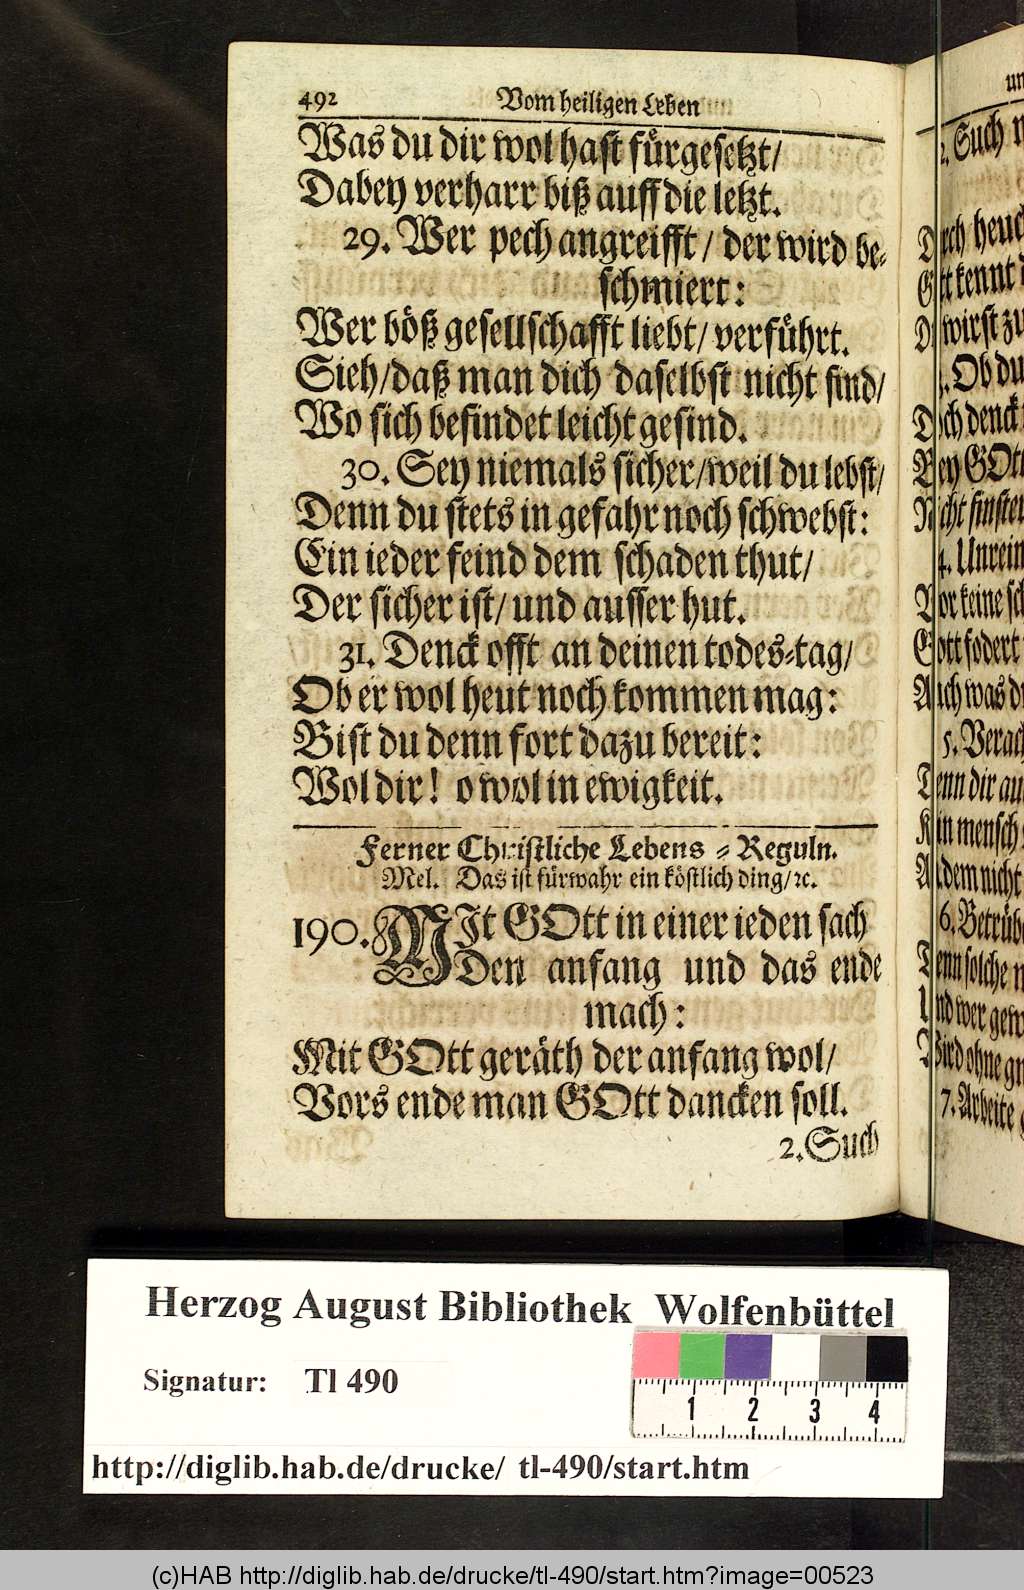 492 Vom heiligen Leben
Was du dir wol hast fürgesetzt/
Dabey verharr biß auff die letzt.
29. Wer pech angreifft / der wird be-
schmiert:
Wer böß gesellschafft liebt/ verführt.
Sieh/daß man dich daselbst nicht find/
Wo sich befindet leicht gesind.
30. Sey niemals sicher/weil du lebst/
Denn du stets in gefahr noch schwebst:
Ein ieder feind dem schaden thut/
Der sicher ist/ und ausser hut.
31. Denck offt an deinen todes-tag/
Ob er wol heut noch kommen mag:
Bist du denn fort dazu bereit:
Wol dir! o wol in ewigkeit.
Ferner Christliche Lebens-Reguln.
Mel. Das ist fürwahr ein köstlich ding/ ꝛc.
190. MIt GOtt in einer ieden sach
Den anfang und das ende
mach:
Mit GOtt geräth der anfang wol/
Vors ende man GOtt dancken soll.
2. Such
un
2. Such
Durch
Gott kennt
Du wirst zu
3. Ob du
Doch denck
Bey GOtt
Nicht finster
4. Unrein
Vor keine
Gott fodert
Auch was
5. Verach
Denn dir
Kein mensch
dem nicht
6. Betrüb
Denn solche
Und wer
Wird ohne
7. Arbeite
Herzog August Bibliothek Wolfenbüttel
Signatur: Tl 490
1 2 3 4
http://diglib.hab.de/drucke/ tl-490/start.htm
(c)HAB http://diglib.hab.de/drucke/tl-490/start.htm?image=00523